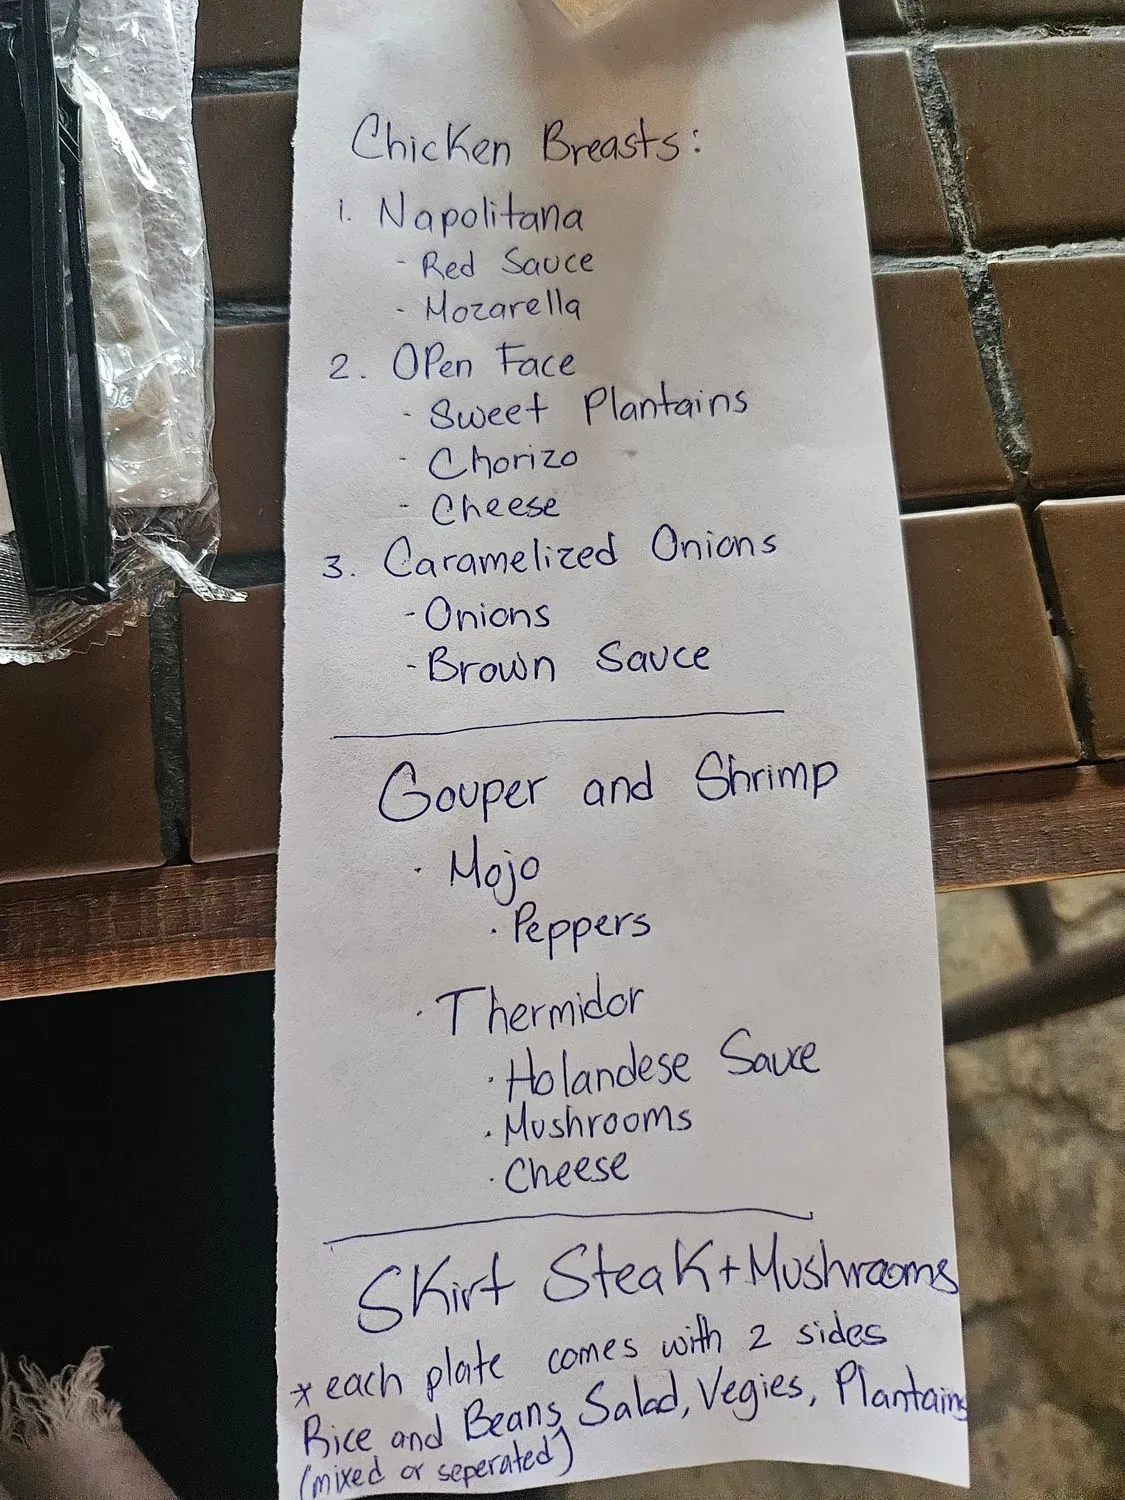 Chicken Breasts:
1. Napolitana
- Red Sauce
- Mozarella
2. Open Face
- Sweet Plantains
- Chorizo
- Cheese
3. Caramelized Onions
- Onions
- Brown Sauce
Gouper and Shrimp
· Mojo
· Peppers
· Thermidor
· Holandese Sauce
· Mushrooms
· Cheese
Skirt Steak + Mushrooms
* each plate comes with 2 sides
Rice and Beans, Salad, Vegies, Plantains
(mixed or seperated)